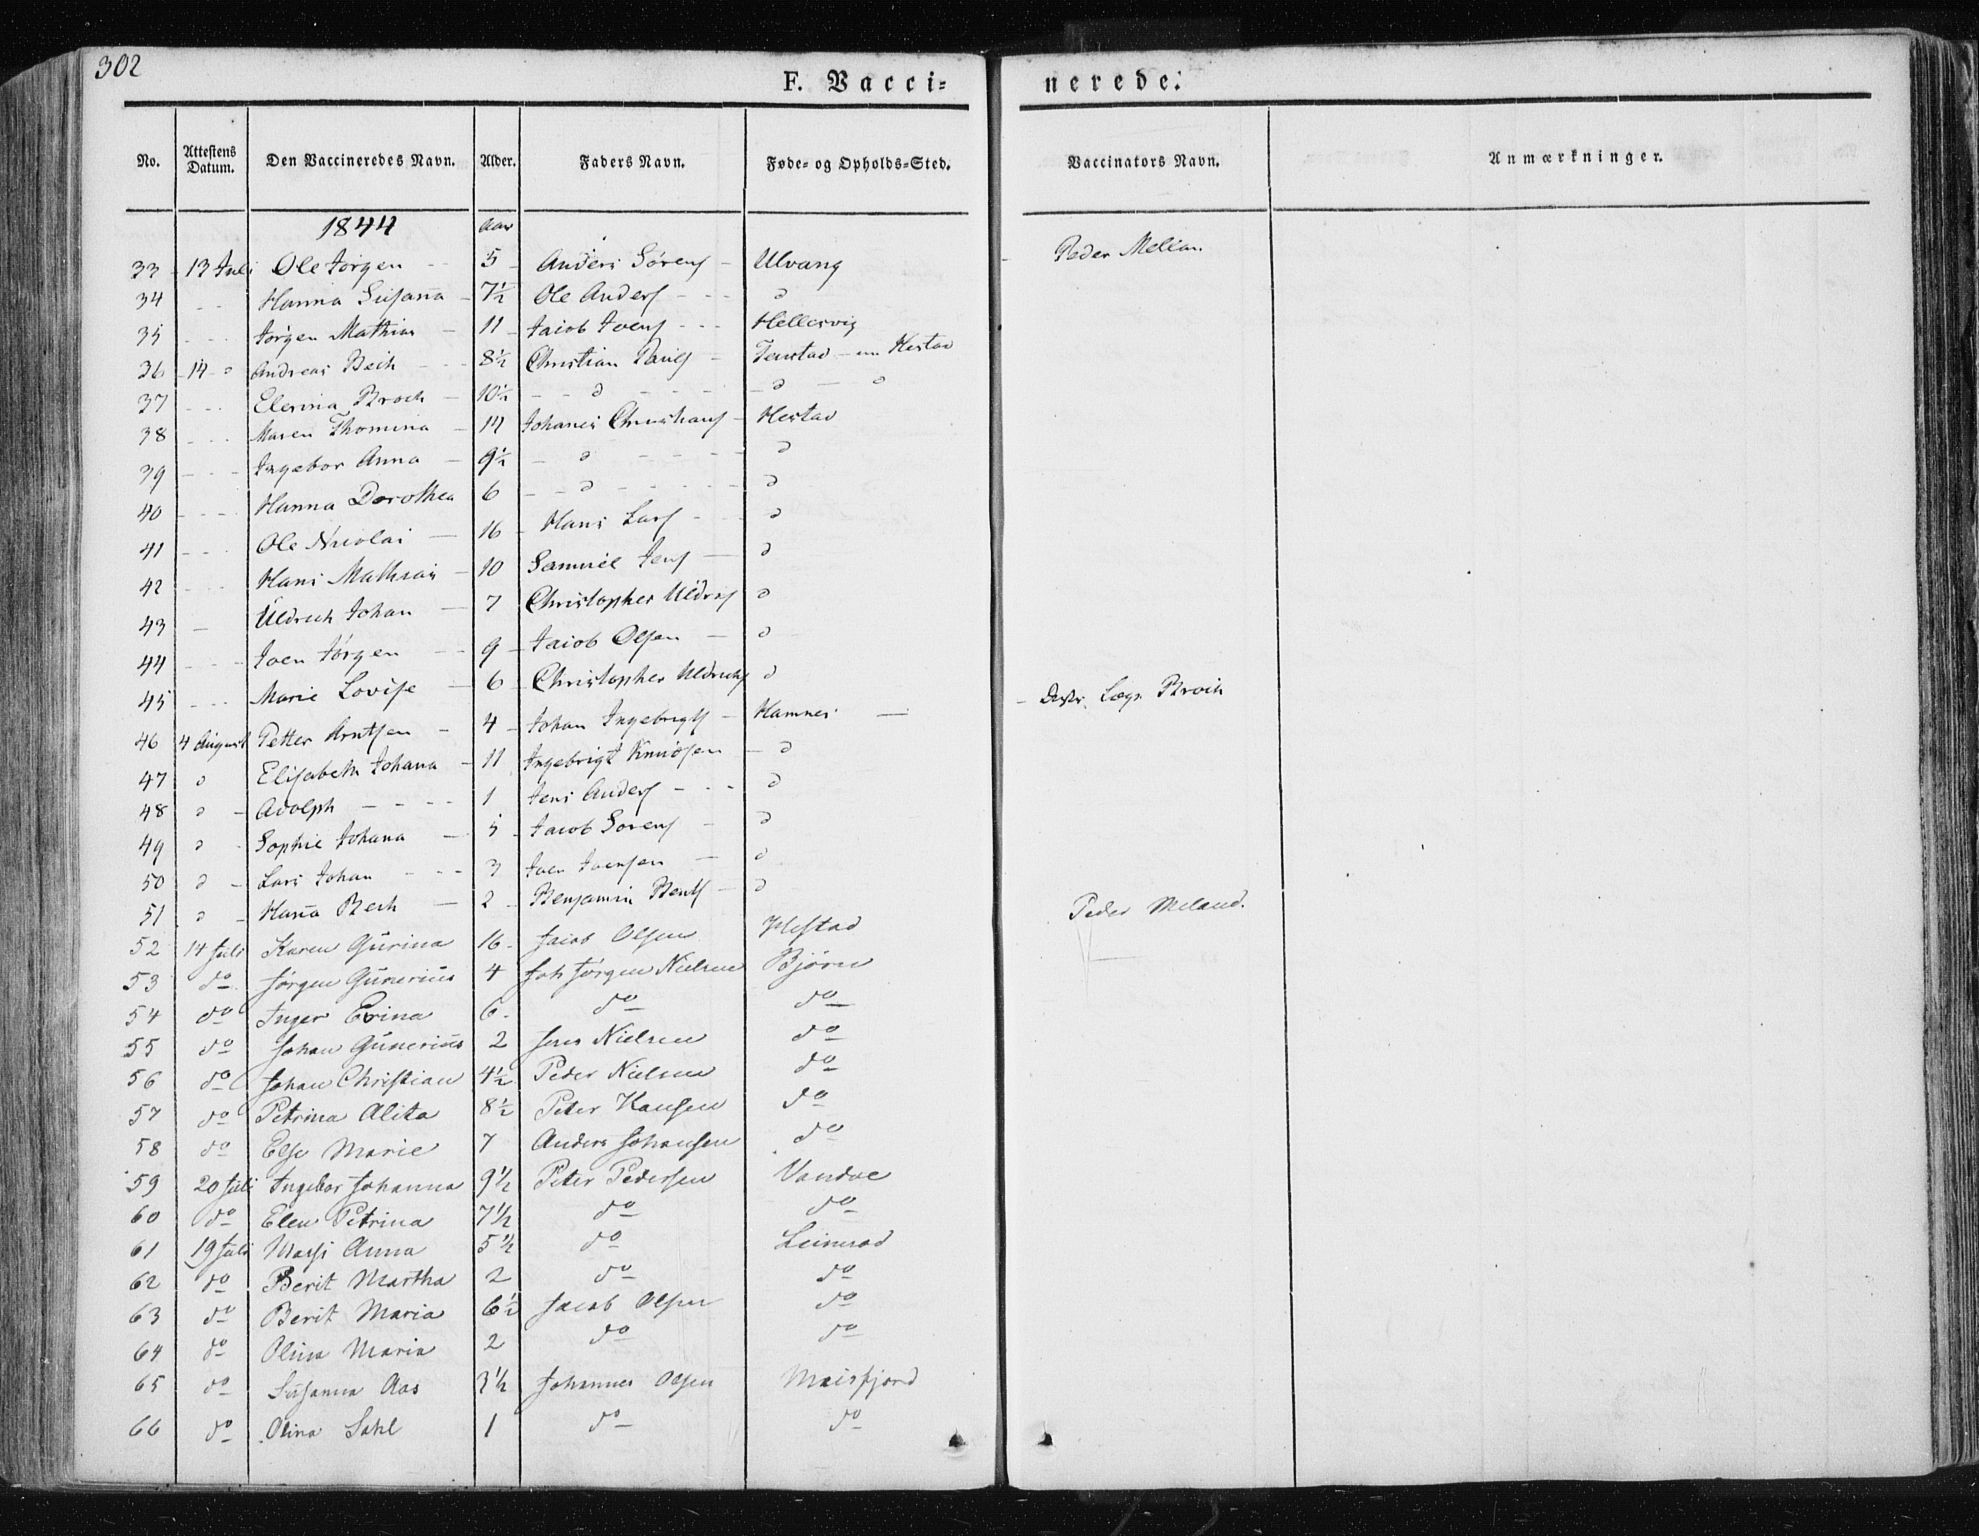 302
F. Vacci-
nerede.
No. Attestens Datum. Den Vaccineredes Navn. Alder. Faders Navn. Føde- og Opholds-Sted. Vaccinators Navn. Anmærkninger.
1844 Aar
33 - 13 Juli Ole Jørgen - - 5 - Anders Sørens - Ulvang - Peder
34 - - Hanna Susana - 7½ Ole Anders - - - d
35 - - - Jørgen Mathias - 11 - Jacob Joens - - - Hellesvig
36 - 14 - d Andreas Bech - - - 8½ Christian - Hestad
37 - - - Broch - 10½ - - d - - - - - d - d
38 - - - Maren Thomina - 14 Johanes Christians - Hestad
39 - - - Ingebor Anna - 9½ - d - - - - d
40 - - - Hanna Dorothea 6 - - d - - - - - d
41 - - Ole Nicolai - 16 - Hans Lars - - d
42 - - - Hans Mathias - 10 Samuel Jens - d
43 - Uldrich Johan - 7 Christopher d
44 - - - Joen Jørgen - - 9 - Jacob Olsen - d
45 - - - Marie Lovise - 6 - Christopher Uldrichs d
46 4 August Petter Arntsen - 4 - Johan Ingebrigts - Hamnes - - Broch
47 d Elisabeth Johana - 11 Ingebrigt Knudsen - d
48 d - Adolph - - - - 1 Jens Anders - - - d
49 d - Sophie Johana - 5 - Jacob Sørens - d
50 d - Lars Johan - - - 3 Joen Joensen - d
51 d - Hana Bech - 2 - Benjamin Bents - d
52 14 Juli Karen Gurina 16 - Jacob Olsen Hestad Peder Meland.
53 do Jørgen Gunerius 4 Joh Jørgen Nielsen Bjørn
54 do Inger Erina 6 - do do
55 do Johan Gunerius 2 Jens Nielsen do
56 do Johan Christian 4½ Peder Nielsen do
57 do Petrina Alita 8½ Peter Hansen do
58 do Else Marie 7 Anders Johansen do
59 20 Juli Ingebor Johanna 9½ Peter Pedersen Vandve
60 do Elen Petrina 7½ do do
61 19 Juli Anna 5½ do
62 do Berit Martha 2 do do
63 do Berit Maria 6½ Jacob Olsen do
64 do Olina Maria 2 do do
65 do Susanna Aas 3½ Johannes Olsen Meisfjord
66 do Olina Sahl 1 do do